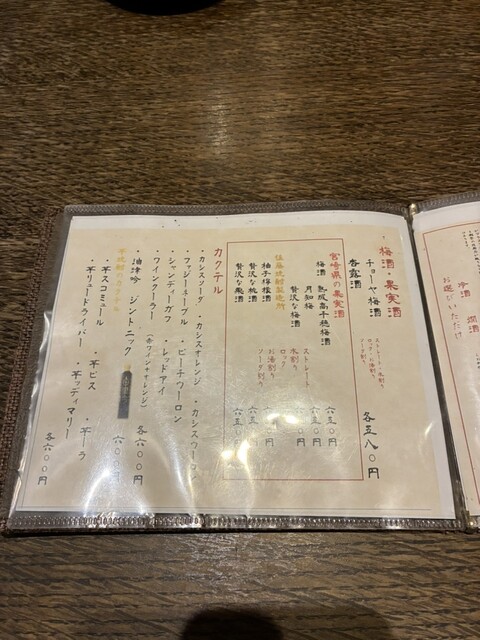 梅酒・果実酒
チョーヤ梅酒
杏露酒
ストレート・水割り
ロック・お湯割り
ソーダ割り
各五八〇円
宮崎県の果実酒
梅酒 熟成高千穂梅酒 六五〇円
月知梅
贅沢な梅酒
ストレート
水割り
ロック
お湯割り
ソーダ割り
柚子檸檬酒
贅沢な桃酒 六五〇円
贅沢な 六五〇円
カクテル
・カシスソーダ ・カシスオレンジ ・カシスウーロン
・ファジーネーブル ・ピーチウーロン
・シャンディーガフ ・レッドアイ
・ワインクーラー (赤ワイン×オレンジ)
各六〇〇円
・油津吟 ジントニック 六〇〇円
芋焼酎のカクテル
・芋スコミュール ・芋ビス ・芋ーラ
・芋リュードライバー ・芋ッディマリー
各六〇〇円
冷酒
燗酒
お選びいただけ